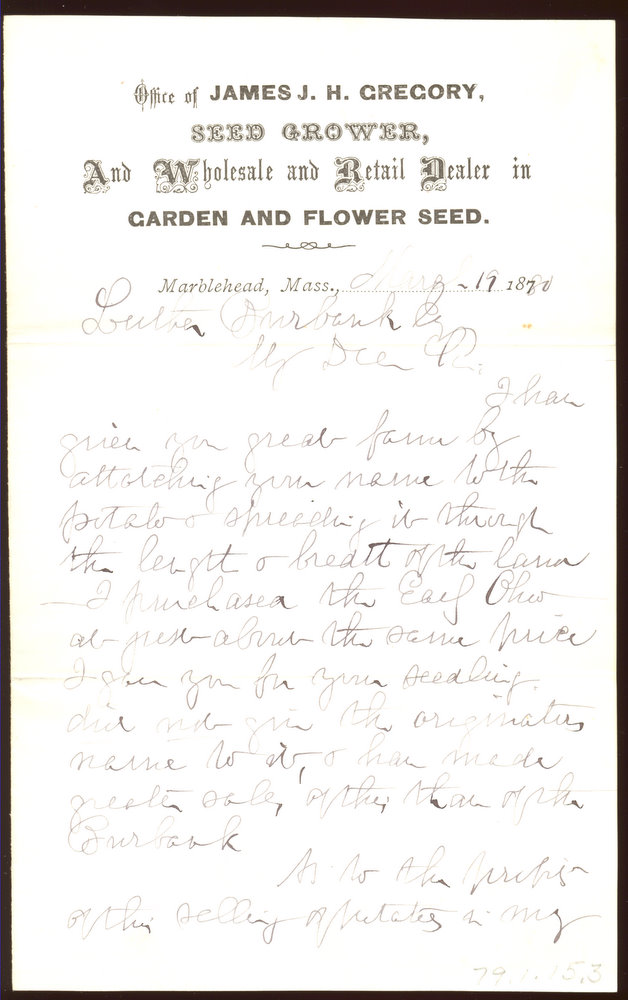 Office of JAMES J. H. GREGORY,
SEED GROWER,
And Wholesale and Retail Dealer in
GARDEN AND FLOWER SEED.
Marblehead, Mass., March 19 1880
Luther Burbank Esq
My Dear Sir.
I have
given you great fame by
attatching your name to the
potato & spreading it through
the length & breatt of the land
— I purchased the Early Ohio
at just about the same price
I gave you for your seedling.
did not give the originators
name to it, & have made
greater sales of this than of the
Burbank
As to the profits
of this selling of potatoes in my
79.1.15.3